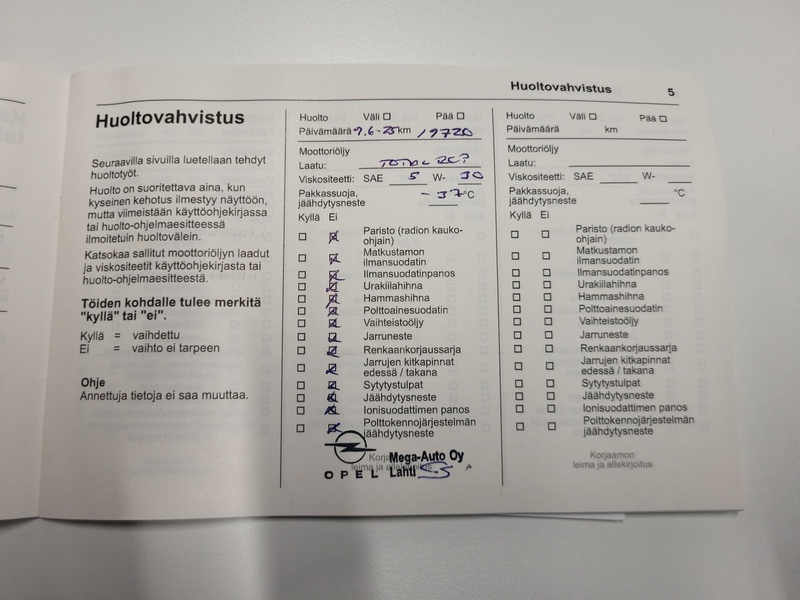 Huoltovahvistus 5
Huoltovahvistus
Seuraavilla sivuilla luetellaan tehdyt
huoltotyöt.
Huolto on suoritettava aina, kun
kyseinen kehotus ilmestyy näyttöön,
mutta viimeistään käyttöohjekirjassa
tai huolto-ohjelmaesitteessä
ilmoitetuin huoltovälein.
Katsokaa sallitut moottoriöljyn laadut
ja viskositeetit käyttöohjekirjasta tai
huolto-ohjelmaesitteestä.
Töiden kohdalle tulee merkitä
"kyllä" tai "ei".
Kyllä = vaihdettu
Ei = vaihto ei tarpeen
Ohje
Annettuja tietoja ei saa muuttaa.
Huolto Väli Pää
Päivämäärä 9.6-25 km 19720
Moottoriöljy
Laatu: TOTAL
Viskositeetti: SAE 5 W- 30
Pakkassuoja,
jäähdytysneste -37 °C
Kyllä Ei
Paristo (radion kauko-
ohjain)
Matkustamon
ilmansuodatin
Ilmansuodatinpanos
Urakiilahihna
Hammashihna
Polttoainesuodatin
Vaihteistoöljy
Jarruneste
Renkaankorjaussarja
Jarrujen kitkapinnat
edessä / takana
Sytytystulpat
Jäähdytysneste
Ionisuodattimen panos
Polttokennojärjestelmän
jäähdytysneste
Korjaamon
leima ja allekirjoitus
Mega-Auto Oy
OPEL Lahti
Huolto Väli Pää
Päivämäärä km
Moottoriöljy
Laatu:
Viskositeetti: SAE W-
Pakkassuoja,
jäähdytysneste °C
Kyllä Ei
Paristo (radion kauko-
ohjain)
Matkustamon
ilmansuodatin
Ilmansuodatinpanos
Urakiilahihna
Hammashihna
Polttoainesuodatin
Vaihteistoöljy
Jarruneste
Renkaankorjaussarja
Jarrujen kitkapinnat
edessä / takana
Sytytystulpat
Jäähdytysneste
Ionisuodattimen panos
Polttokennojärjestelmän
jäähdytysneste
Korjaamon
leima ja allekirjoitus